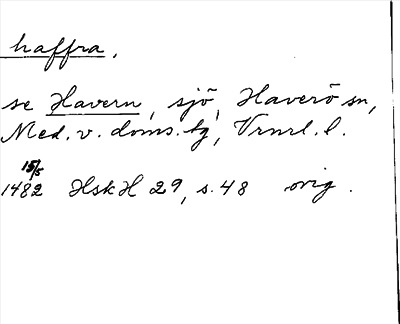 haffra.
se Havern, sjö, Haverö sn,
Med. v. doms. tg, Vrnrl. l.
15/5
1482 HskH 29, s. 48 orig.